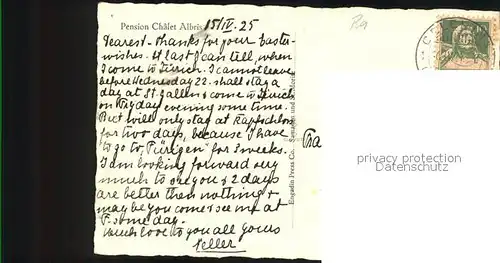 Pension Châlet Albris
15/IV. 25
Dearest - thanks for your Easter-
wishes. At last I can tell, when
I come to Zürich. I cannot leave
before Wednesday 22. shall stay a
day at St. Gallen & come to Zürich
on Fryday evening some time.
But will only stay at
for two days, because I have
to go to "Fürigen" for 3 weeks.
I am looking forward very
much to see you & 2 days
are better than nothing &
may be you come & see me at
F. some day.
Much love to you all yours
Engadin Press Co., Samaden und
privacy protection
Datenschutz